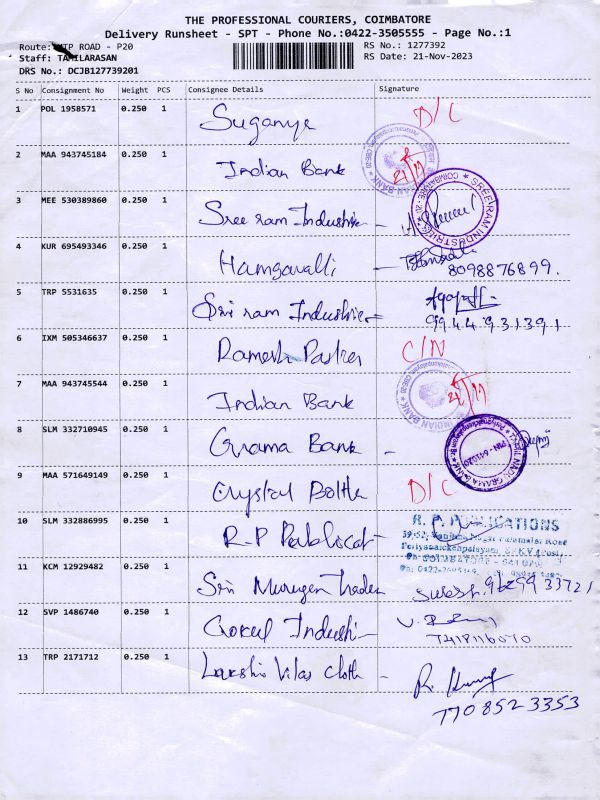 THE PROFESSIONAL COURIERS, COIMBATORE
Delivery Runsheet - SPT - Phone No.:0422-3505555 - Page No.:1
Route: MTP ROAD - P20
RS No.: 1277392
Staff: TAMILARASAN
RS Date: 21-Nov-2023
DRS No.: DCJB127739201
S No Consignment No Weight PCS Consignee Details Signature
1 POL 1958571 0.250 1 Suganya D/C
2 MAA 943745184 0.250 1 Indian Bank
3 MEE 530389860 0.250 1 Sree ram Industrie -
SREE RAM INDUSTRIES * COIMBATORE - 20 *
4 KUR 695493346 0.250 1 Hamsavalli - 8098876899.
5 TRP 5531635 0.250 1 Sri ram Industries
9944931391
6 IXM 505346637 0.250 1 Ramesh C/N
7 MAA 943745544 0.250 1 Indian Bank
INDIAN BANK
8 SLM 332710945 0.250 1 Grama Bank -
TAMIL NADU GRAMA BANK
9 MAA 571649149 0.250 1 Crystal D/C
10 SLM 332886995 0.250 1 R.P Publicat-
R. P. PUBLICATIONS
11 KCM 12929482 0.250 1 Sri Murugan Trader
12 SVP 1486740 0.250 1 Gokul Industri-
13 TRP 2171712 0.250 1 Lakshmi Vilas cloth -
7708523353